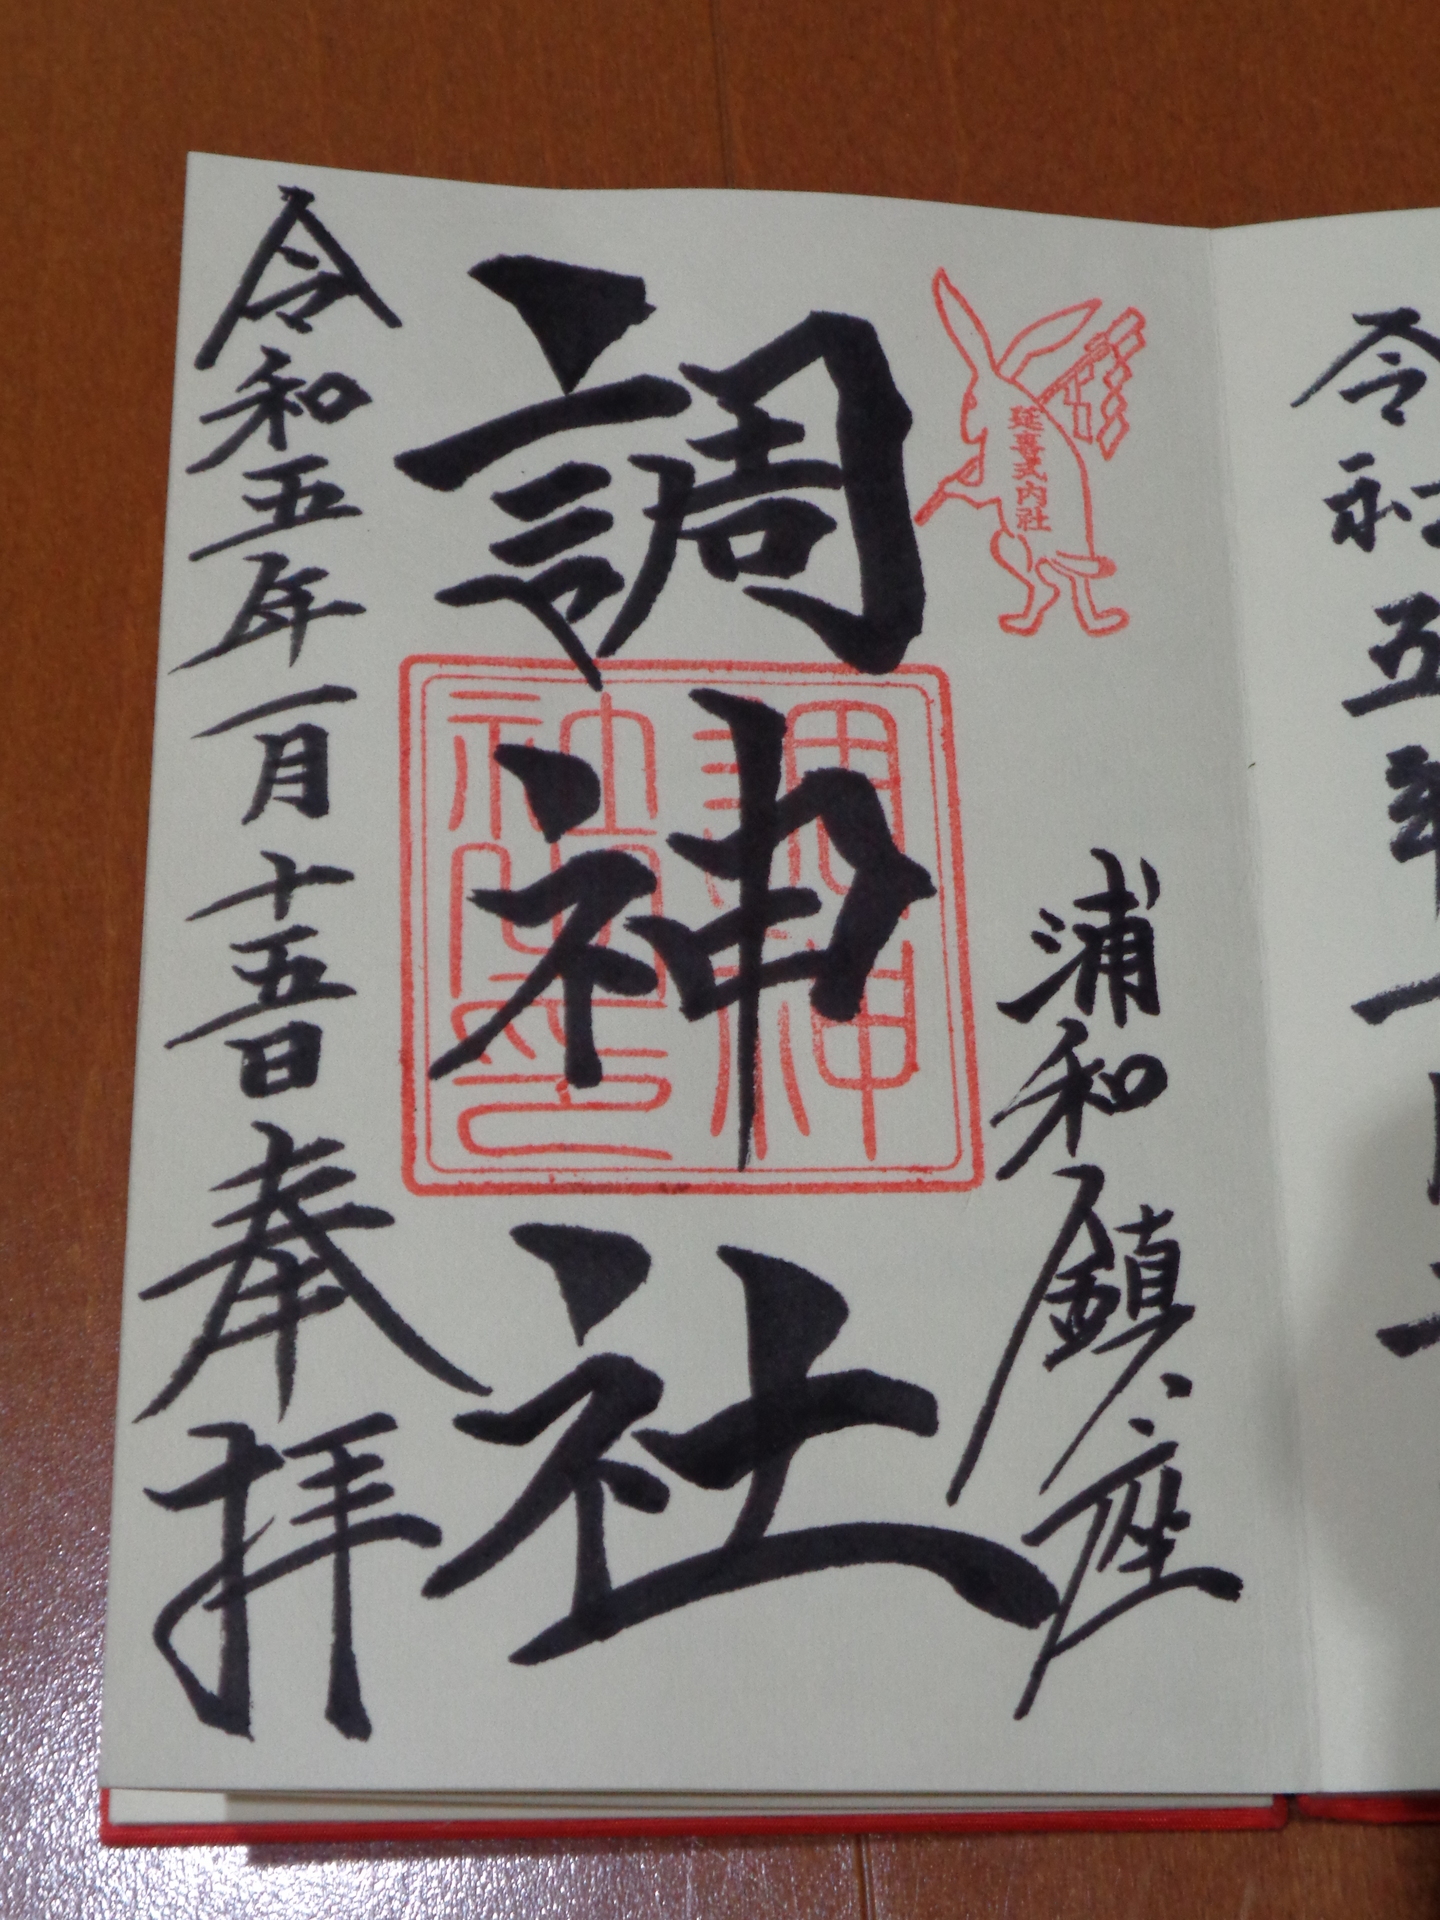 延喜式内社
浦和鎮座
調神社
調神社印
令和五年一月十五日奉拝
令和五年一月